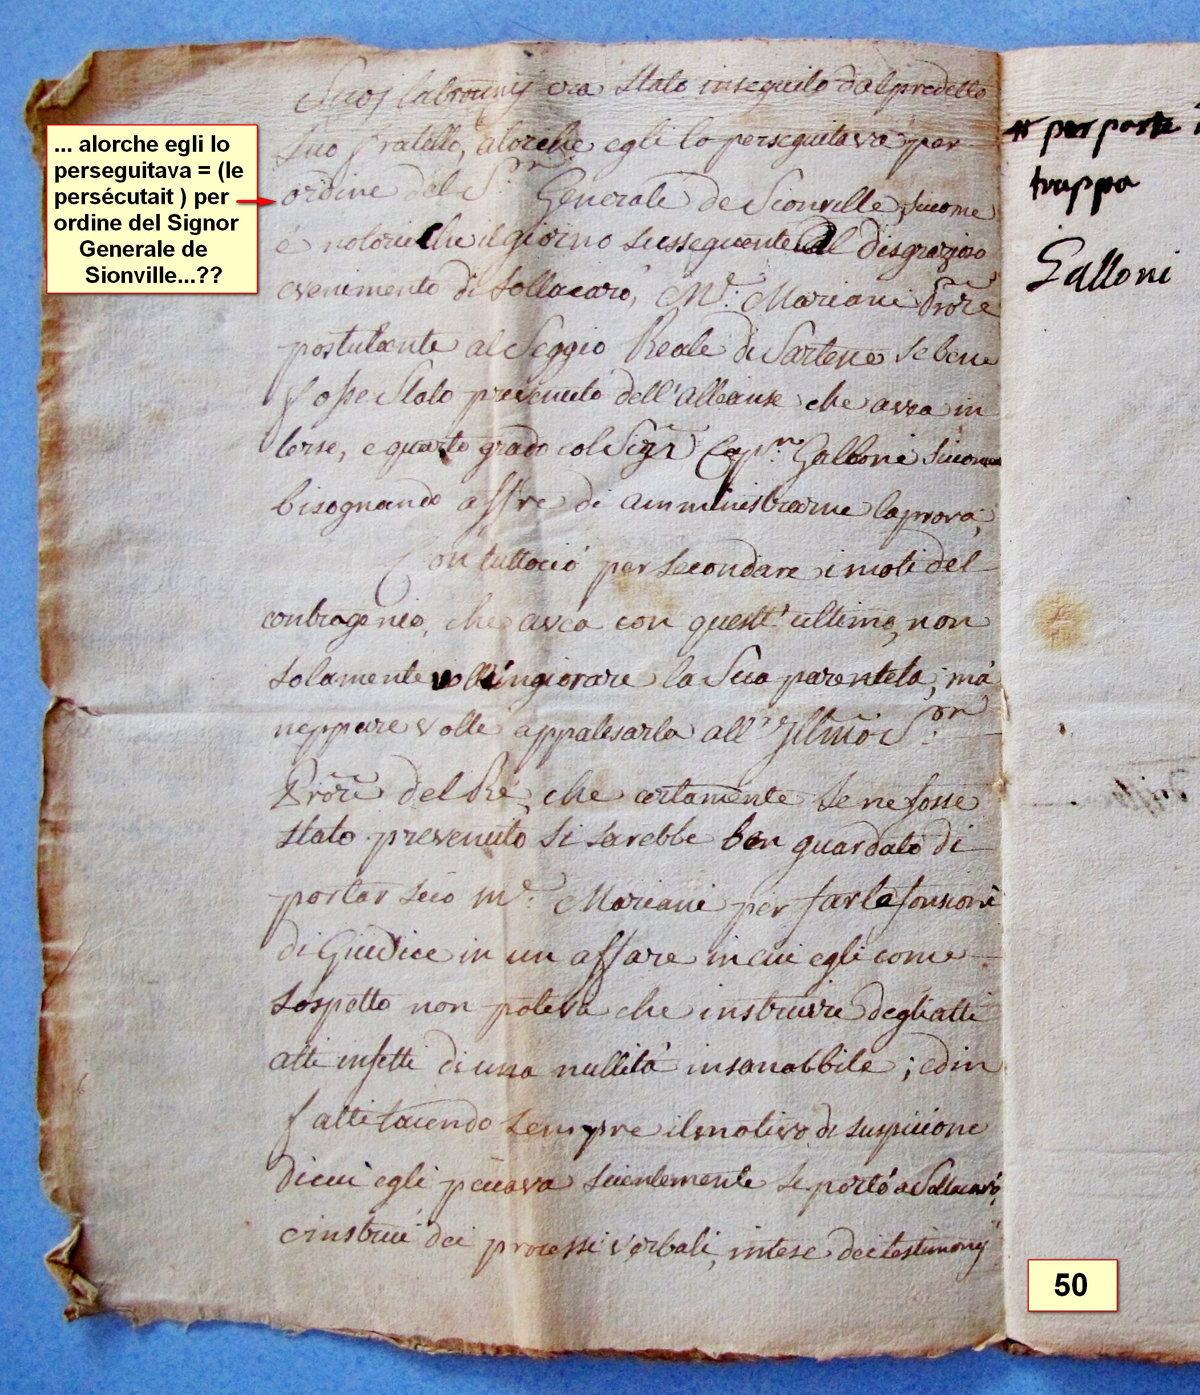 ... alorche egli lo
perseguitava = (le
persécutait ) per
ordine del Signor
Generale de
Sionville...??
era stato inseguito dal predetto
suo fratello, alorche egli lo perseguitava per
ordine del S.or Generale de Sionville, siccome
é notorio che il giorno susseguente al disgrazioso
evenimento di Sollacaro, M.e Mariani Prõre
postulante al Seggio Reale di Sartene se bene
fosse stato prevenuto dell'alleanse che avea in
terse, e quarto grado col Sigr. Cap.n Galloni siccome
bisognando offre di amministrarne la prova,
Con tuttociò per secondare i moti del
che avea con quest'ultimo, non
solamente ingiorare la sua parentela, má
neppure volle appalesarla all'Illmo S.or
Prõre del Ré, che certamente se ne fosse
stato prevenuto si sarebbe ben guardato di
portar seco M.e Mariani per far le fonsioni
di Giudice in un affare in cui egli come
sospetto non poteva che instruire degli atti
atti infetti di una nullitá insanabbile; ed in
fatti tacendo sempre il motivo di suspicione
di cui egli scientemente si portó a Sollacaró,
e instruí dei processi verbali, intese dei testimonij
# per parte
truppa
Galloni
50